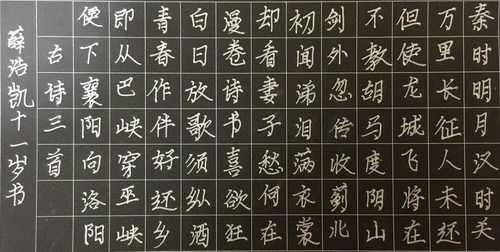 秦时明月汉时关
万里长征人未还
但使龙城飞将在
不教胡马度阴山
剑外忽传收蓟北
初闻涕泪满衣裳
却看妻子愁何在
漫卷诗书喜欲狂
白日放歌须纵酒
青春作伴好还乡
即从巴峡穿巫峡
便下襄阳向洛阳
古诗三首
薛浩凯十一岁书